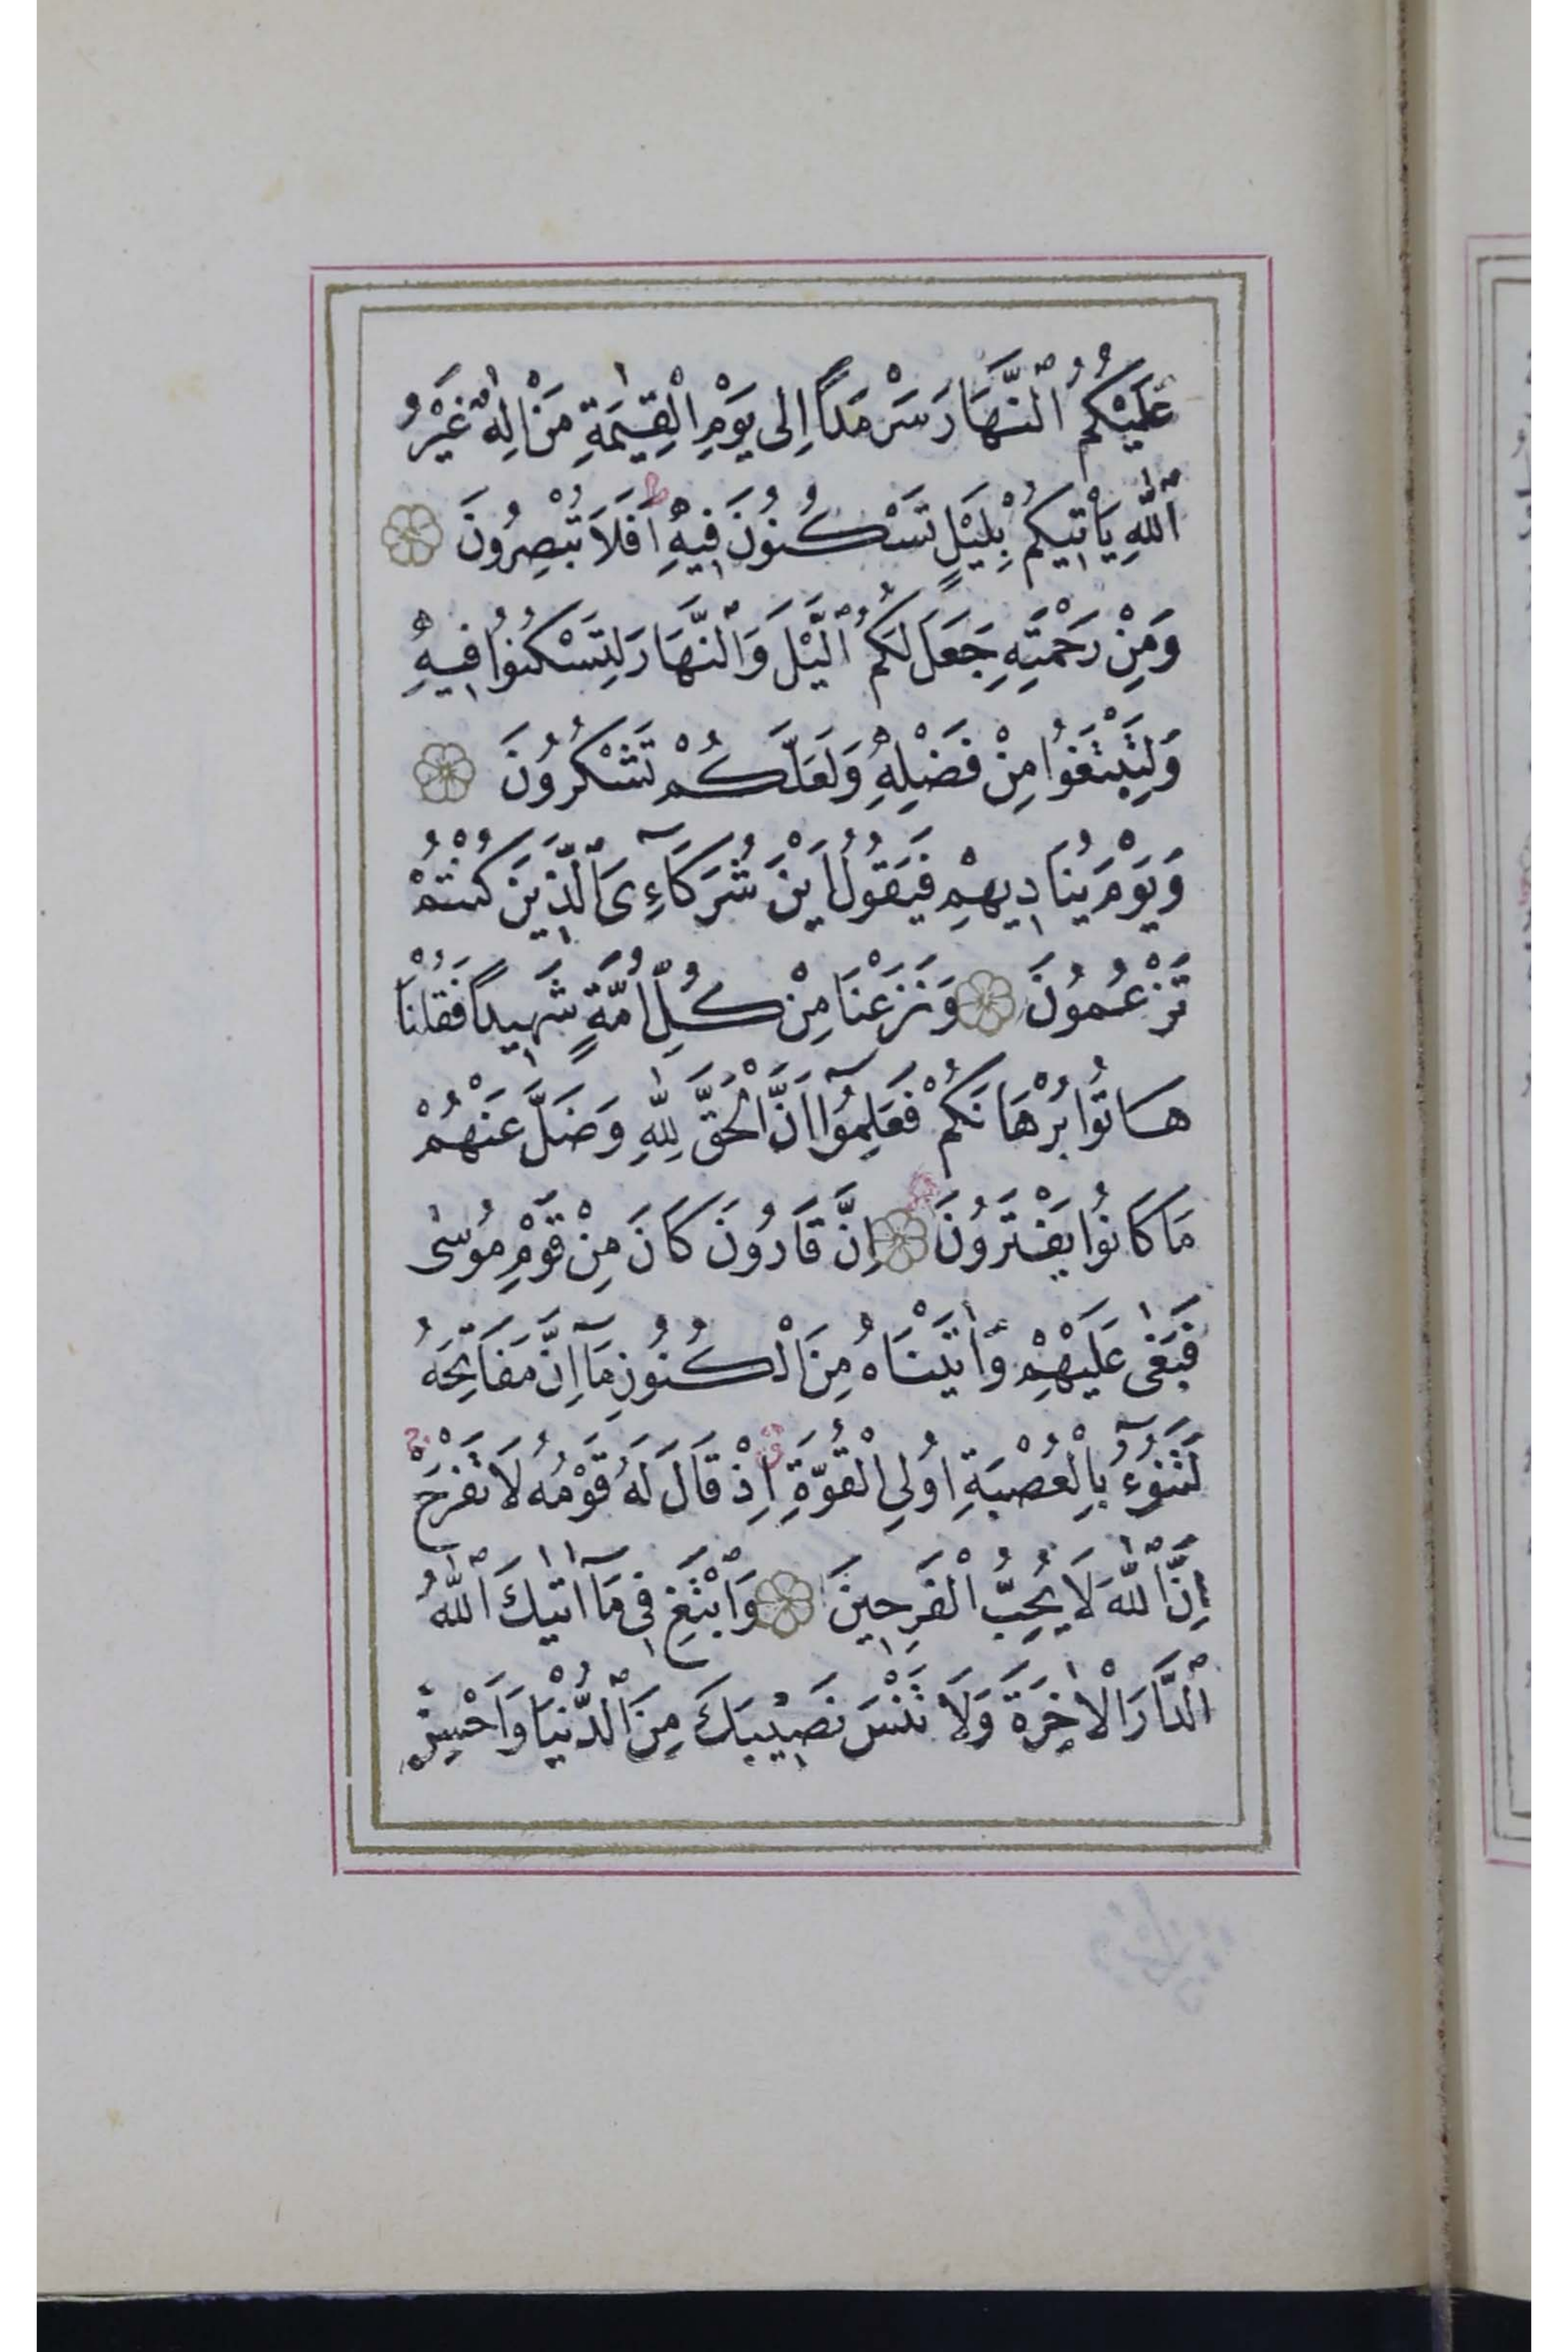 عَلَيْكُمُ ٱلنَّهَارَ سَرْمَدًا اِلٰى يَوْمِ الْقِيٰمَةِ مَنْ اِلٰهٌ غَيْرُ
ٱللّٰهِ يَاْتِيكُمْ بِلَيْلٍ تَسْكُنُونَ فِيهِ ط اَفَلَا تُبْصِرُونَ
وَمِنْ رَحْمَتِهِ جَعَلَ لَكُمُ ٱلَّيْلَ وَٱلنَّهَارَ لِتَسْكُنُوا فِيهِ
وَلِتَبْتَغُوا مِنْ فَضْلِهِ وَلَعَلَّكُمْ تَشْكُرُونَ
وَيَوْمَ يُنَادِيهِمْ فَيَقُولُ اَيْنَ شُرَكَآءِىَ ٱلَّذِينَ كُنْتُمْ
تَزْعُمُونَ وَنَزَعْنَا مِنْ كُلِّ اُمَّةٍ شَهِيدًا فَقُلْنَا
هَاتُوا بُرْهَانَكُمْ فَعَلِمُوٓا اَنَّ الْحَقَّ لِلّٰهِ وَضَلَّ عَنْهُمْ
مَا كَانُوا يَفْتَرُونَ ع اِنَّ قَارُونَ كَانَ مِنْ قَوْمِ مُوسٰى
فَبَغٰى عَلَيْهِمْ وَاٰتَيْنَاهُ مِنَ الْكُنُوزِ مَآ اِنَّ مَفَاتِحَهُ
لَتَنُوٓءُ بِالْعُصْبَةِ اُولِى الْقُوَّةِ ق اِذْ قَالَ لَهُ قَوْمُهُ لَا تَفْرَحْ
اِنَّ ٱللّٰهَ لَا يُحِبُّ الْفَرِحِينَ وَٱبْتَغِ فِى مَآ اٰتٰيكَ ٱللّٰهُ
ٱلدَّارَ الْاٰخِرَةَ وَلَا تَنْسَ نَصِيبَكَ مِنَ ٱلدُّنْيَا وَاَحْسِنْ